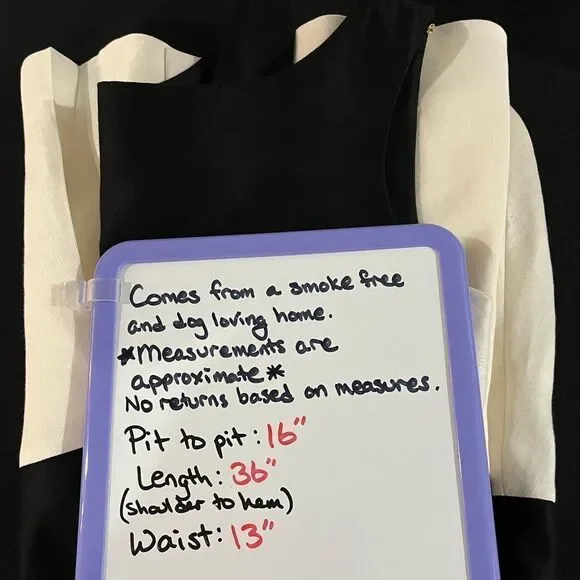 Comes from a smoke free
and dog loving home.
*Measurements are
approximate*
No returns based on measures.
Pit to pit: 16"
Length: 36"
(shoulder to hem)
Waist: 13"